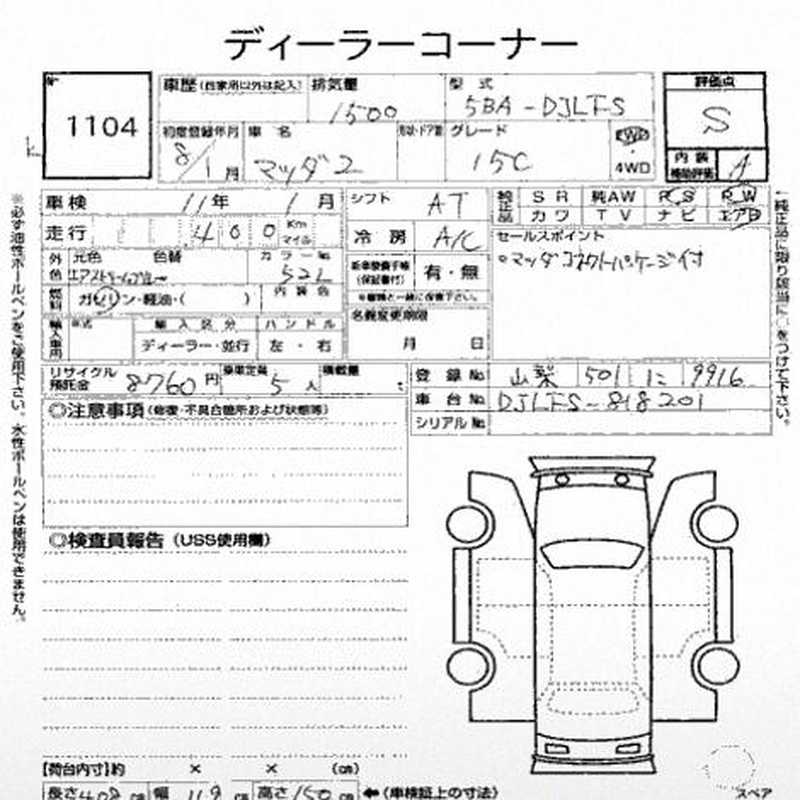 ディーラーコーナー
№ 1104
車歴(自家用以外は記入) 排気量 型式 評価点
1500 5BA-DJLFS S
初度登録年月 車名 形状・ドア数 グレード 2WD
8/1月 マツダ2 15C 4WD
内装補助評価 A
車検 11年 1月 シフト AT 純正品 SR 純AW PS PW
カワ TV ナビ エアB
走行 400 Km マイル 冷房 A/C セールスポイント
外色 元色 色替 カラー№
エアストリームブルー 52L
・マツダコネクトパッケージ付
新車整備手帳(保証書付) 有・無
※車検と一緒に保管下さい。
燃料 ガソリン・軽油・( ) 内装色
輸入車用 年式 輸入区分 ハンドル
ディーラー・並行 左・右
名義変更期限
月 日
リサイクル預託金 8760円 乗車定員 5人 積載量 t
登録№ 山梨 501 に 9916
車台№ DJLFS-818201
シリアル№
◎注意事項(修復・不具合箇所および状態等)
◎検査員報告(USS使用欄)
【荷台内寸】約 × × (㎝)
長さ408㎝ 幅 ㎝ 高さ150㎝ ←(車検証上の寸法)
スペア
※必ず油性ボールペンをご使用下さい。水性ボールペンは使用できません。
←純正品に限り該当に○をつけて下さい。